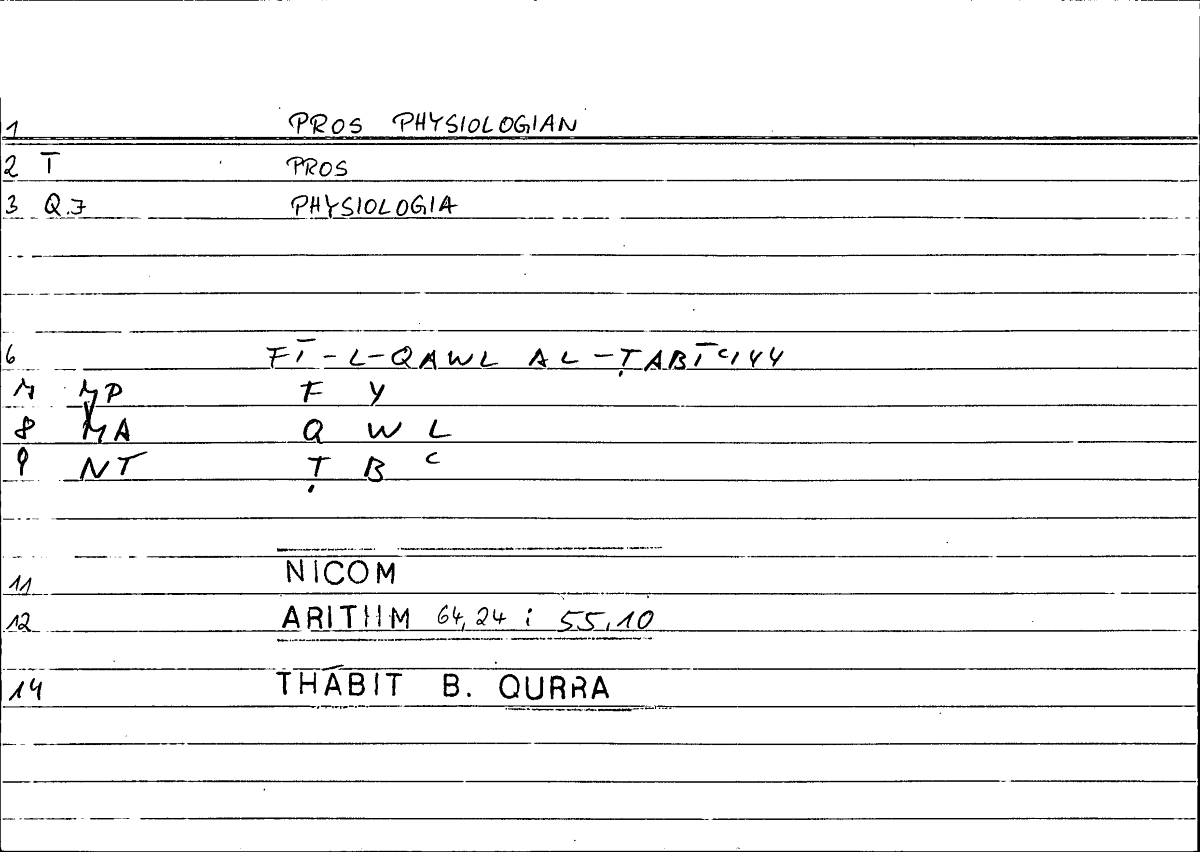 1 PROS PHYSIOLOGIAN
2 T PROS
3 Q.J PHYSIOLOGIA
6 FĪ-L-QAWL AL-ṬABĪʿIYY
7 MP F Y
8 MA Q W L
9 NT Ṭ B ʿ
11 NICOM
12 ARITHM 64,24 ; 55,10
14 THĀBIT B. QURRA